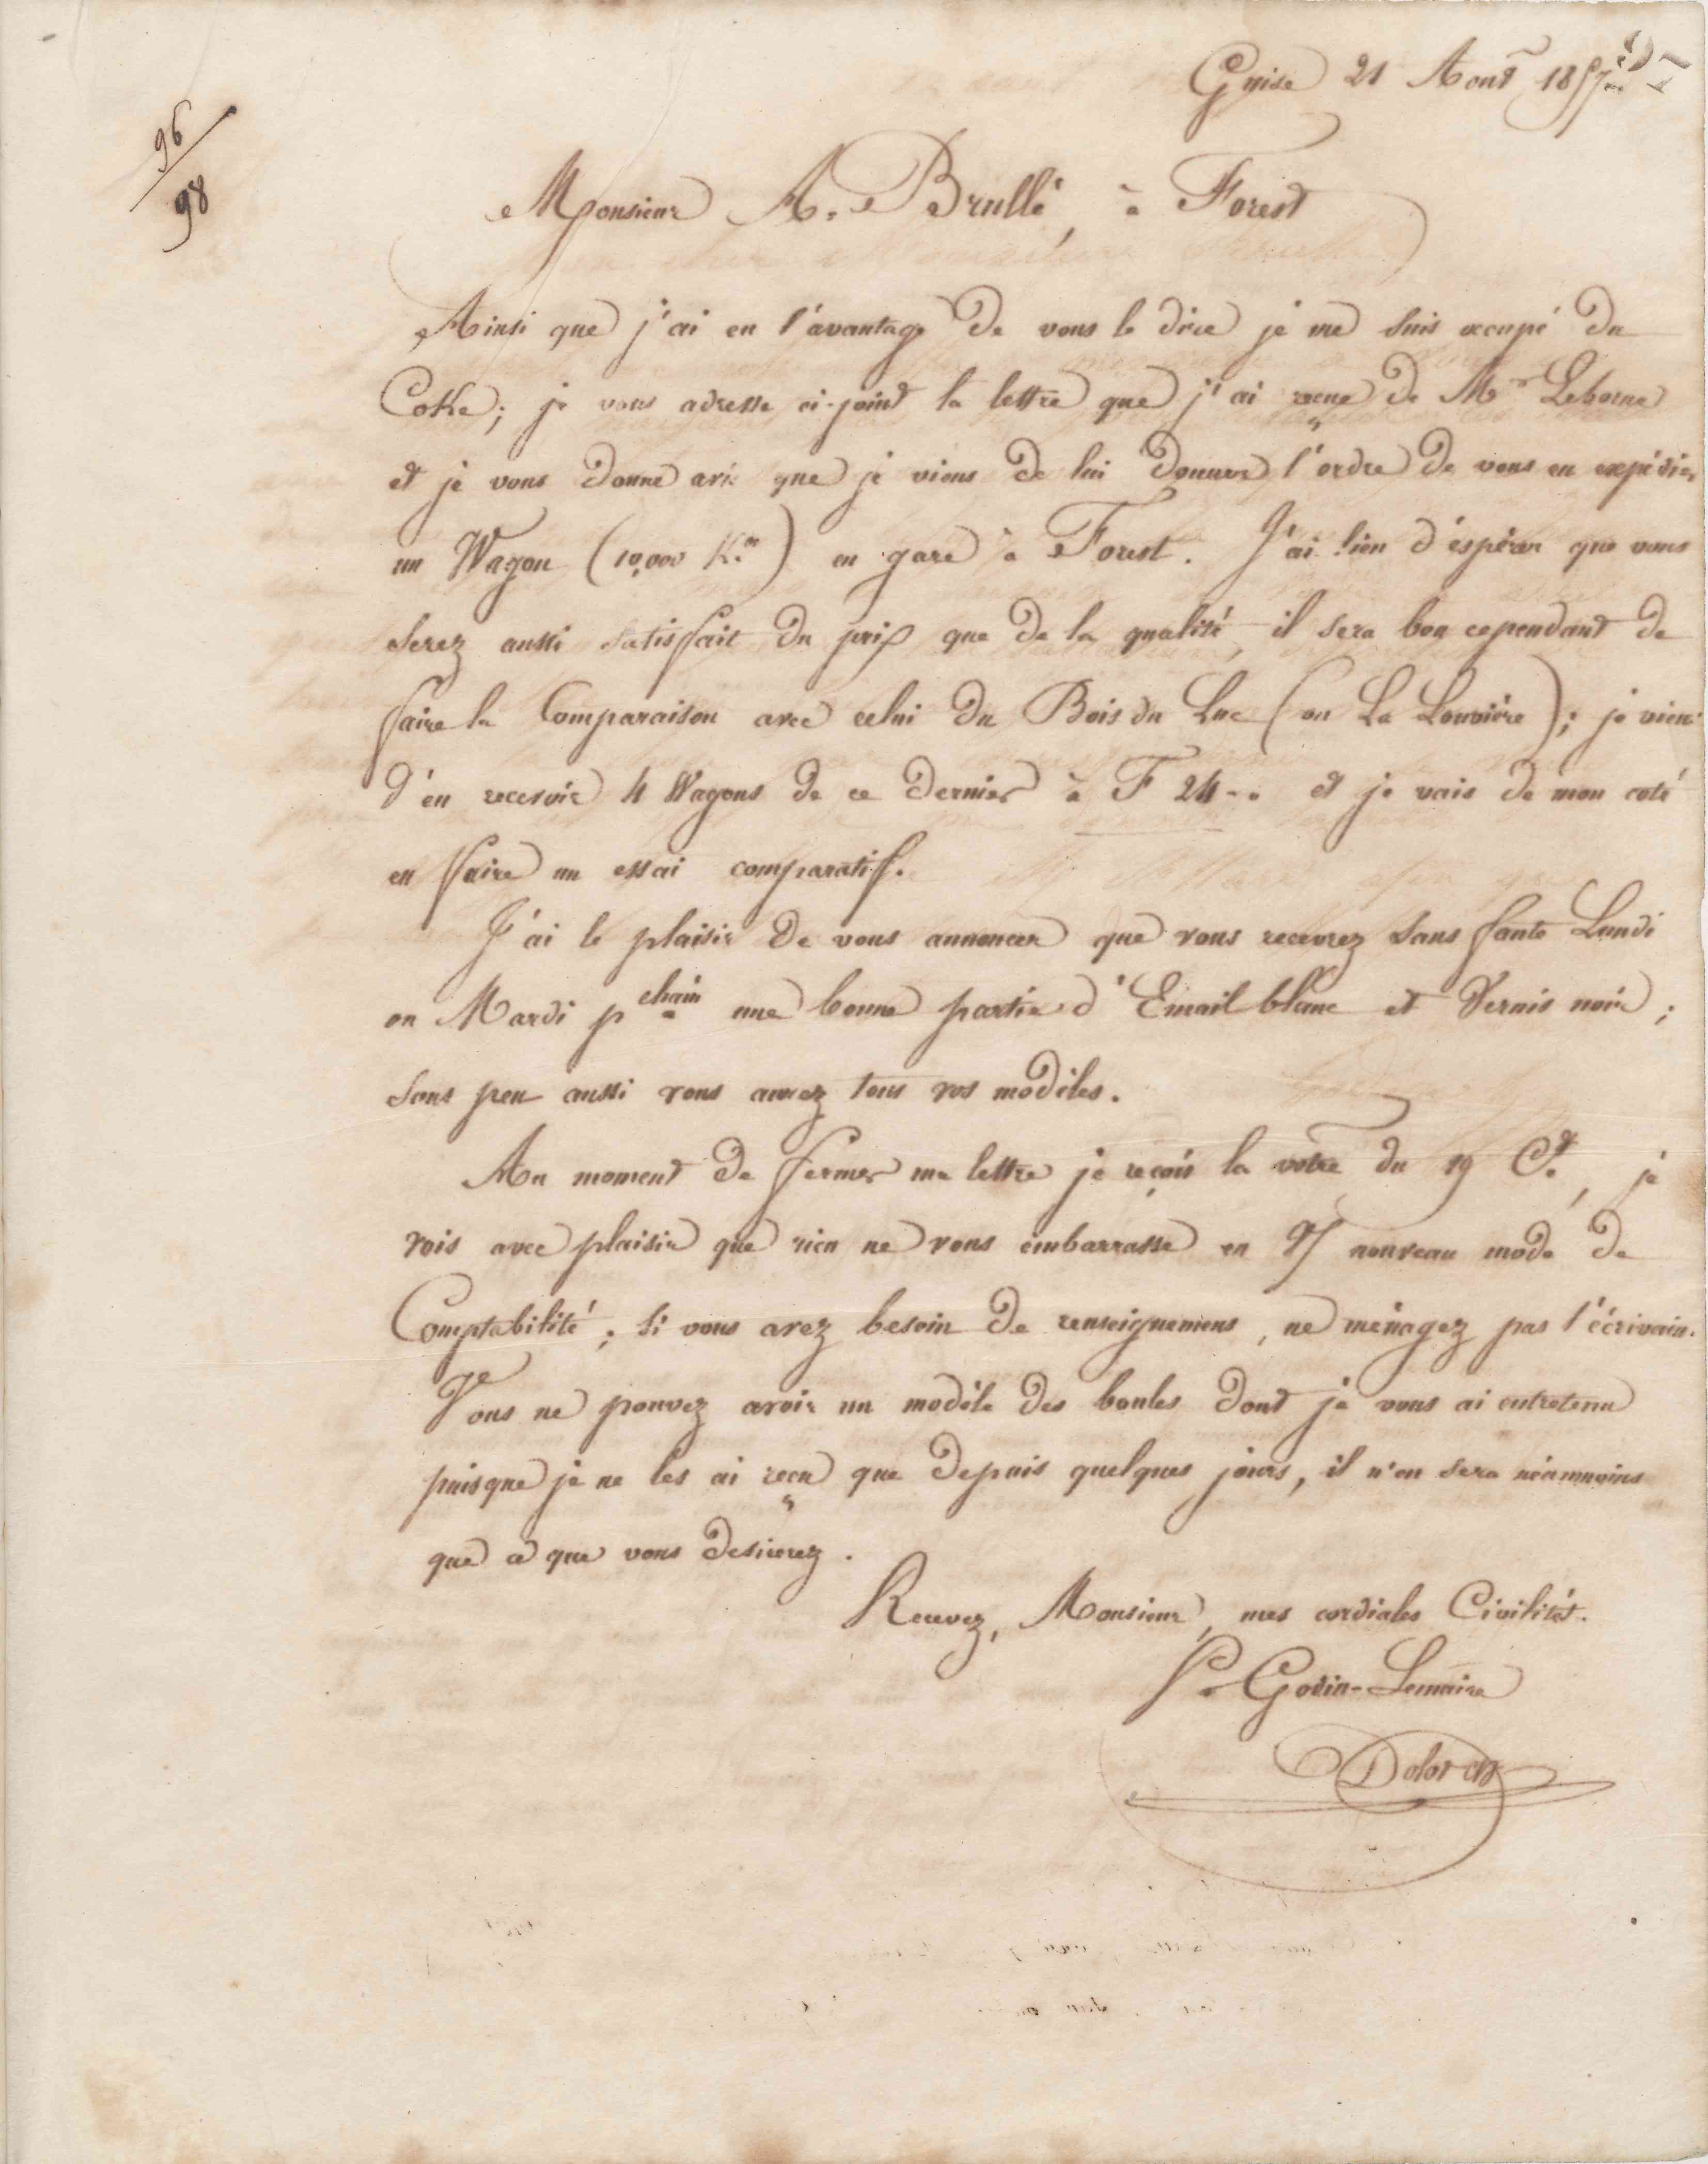 Guise 21 Août 1857
96
98
Monsieur A. Brullé, à Forest
Ainsi que j'ai eu l'avantage de vous le dire je me suis occupé du
Coke; je vous adresse ci-joint la lettre que j'ai reçue de Mr Leborne
et je vous donne avis que je viens de lui donner l'ordre de vous en expédier
un Wagon (10,000 K.os) en gare à Forest. J'ai lieu d'éspérer que vous
serez aussi satisfait du prix que de la qualité, il sera bon cependant de
faire la Comparaison avec celui du Bois du Luc (ou La Louvière); je viens
d'en recevoir 4 Wagons de ce dernier à F 24-. et je vais de mon coté
en faire un essai comparatif.
J'ai le plaisir de vous annoncer que vous recevrez sans faute Lundi
ou Mardi pchain une bonne partie d'Email blanc et Vernis noir;
sous peu aussi vous aurez tous vos modèles.
Au moment de fermer ma lettre je reçois la votre du 19 Ct, je
vois avec plaisir que rien ne vous embarrasse en V/ nouveau mode de
Comptabilité; si vous avez besoin de renseignemens, ne ménagez pas l'écrivain.
Vous ne pouvez avoir un modèle des boules dont je vous ai entretenu
puisque je ne les ai reçu que depuis quelques jours, il n'en sera néanmoins
que ce que vous desirerez.
Recevez, Monsieur, mes cordiales Civilités.
Pr Godin-Lemaire